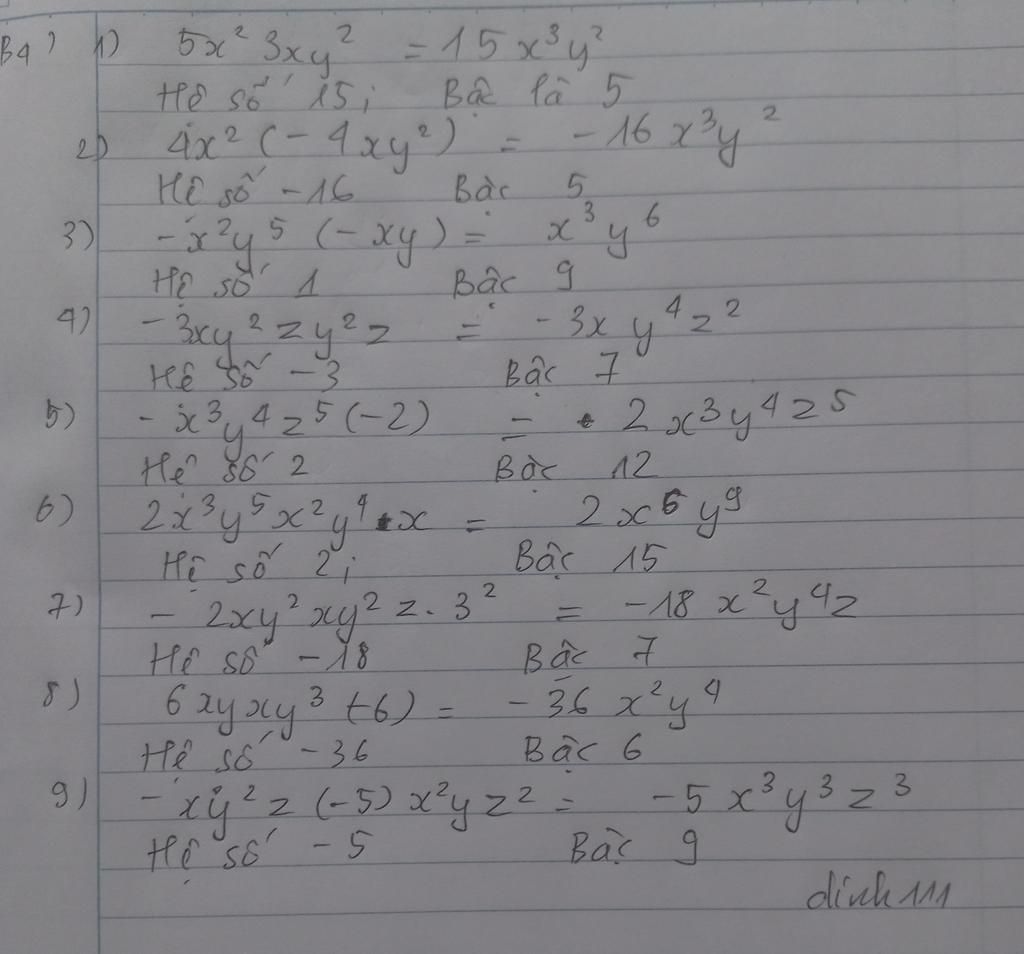 B4) 1) 5x² 3xy² = 15x³y²
Hệ số 15; Bậc là 5
2) 4x² (-4xy²) = -16x³y²
Hệ số -16 Bậc 5
3) -x²y⁵ (-xy) = x³y⁶
Hệ số 1 Bậc 9
4) -3xy²zy²z = -3xy⁴z²
Hệ số -3 Bậc 7
5) -x³y⁴z⁵(-2) = 2x³y⁴z⁵
Hệ số 2 Bậc 12
6) 2x³y⁵x²y⁴.x = 2x⁶y⁹
Hệ số 2; Bậc 15
7) -2xy²xy²z.3² = -18x²y⁴z
Hệ số -18 Bậc 7
8) 6xyxy³(-6) = -36x²y⁴
Hệ số -36 Bậc 6
9) -xy²z(-5)x²yz² = -5x³y³z³
Hệ số -5 Bậc 9
dinh111